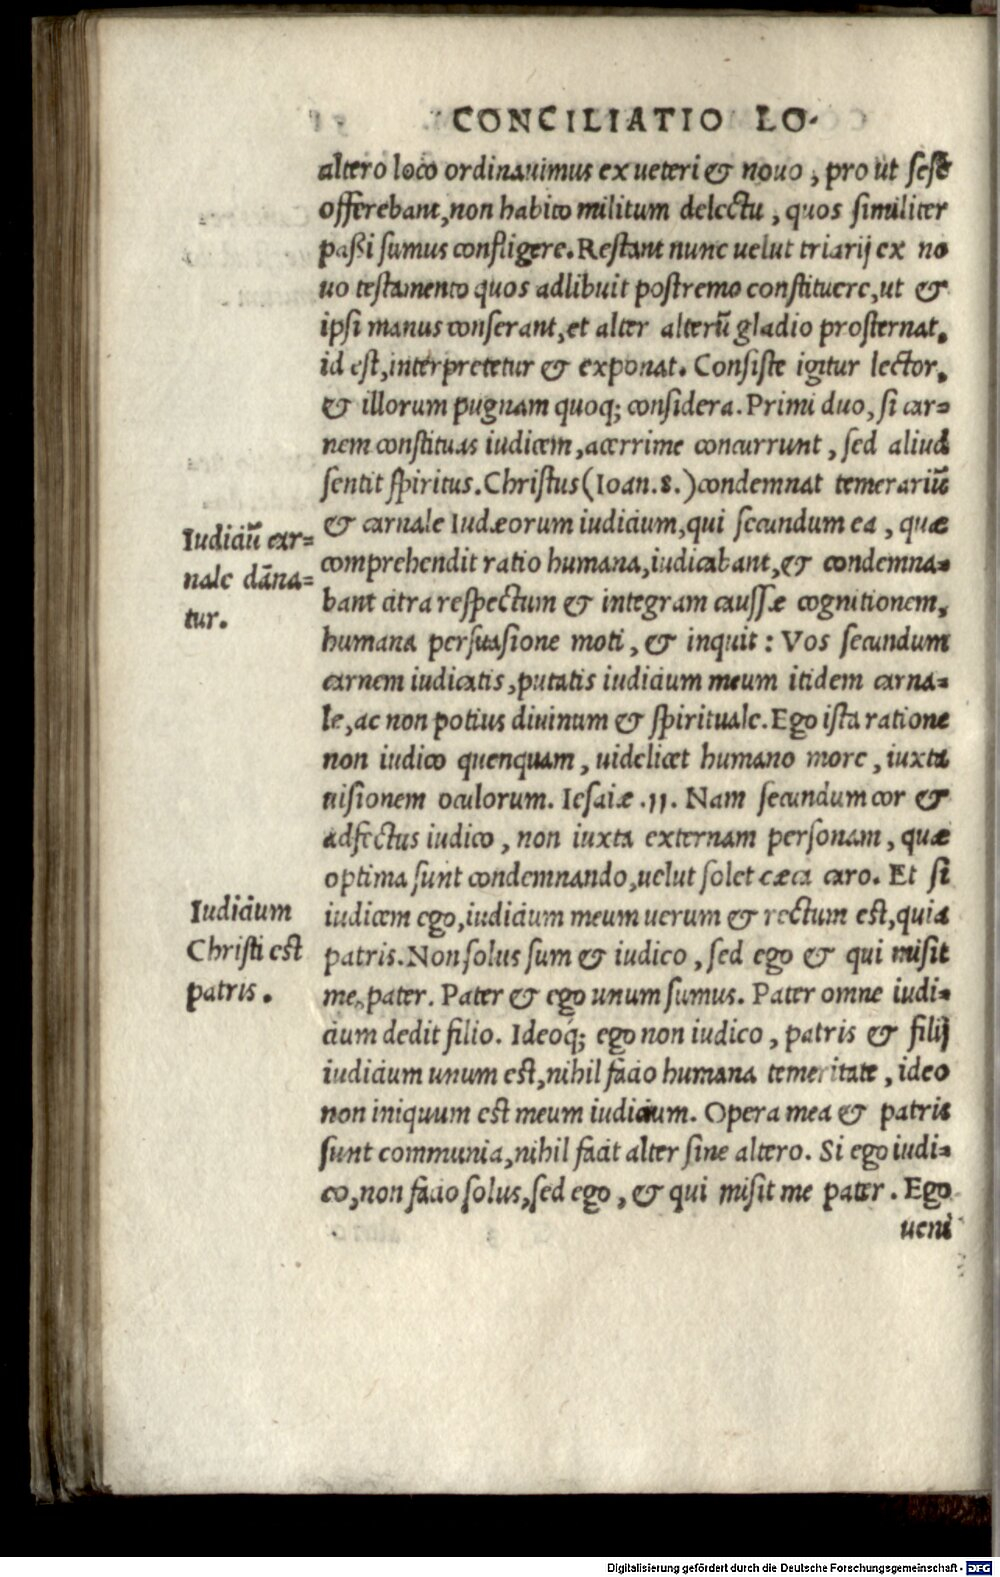 CONCILIATIO LO-
altero loco ordinauimus ex ueteri & nouo, pro ut sese
offerebant, non habito militum delectu, quos similiter
paßi sumus confligere. Restant nunc uelut triarij ex no
uo testamento quos adlibuit postremo constituere, ut &
ipsi manus conserant, et alter alterū gladio prosternat,
id est, interpretetur & exponat. Consiste igitur lector,
& illorum pugnam quoq; considera. Primi duo, si car=
nem constituas iudicem, acerrime concurrunt, sed aliud
sentit spiritus. Christus (Ioan. 8.) condemnat temerariū
& carnale Iudæorum iudicium, qui secundum ea, quæ
comprehendit ratio humana, iudicabant, & condemna=
bant citra respectum & integram caussæ cognitionem,
humana persuasione moti, & inquit: Vos secundum
carnem iudicatis, putatis iudicium meum itidem carna=
le, ac non potius diuinum & spirituale. Ego ista ratione
non iudico quenquam, uidelicet humano more, iuxta
uisionem oculorum. Iesaiæ .11. Nam secundum cor &
adfectus iudico, non iuxta externam personam, quæ
optima sunt condemnando, uelut solet cæca caro. Et si
iudicem ego, iudicium meum uerum & rectum est, quia
patris. Non solus sum & iudico, sed ego & qui misit
me, pater. Pater & ego unum sumus. Pater omne iudi=
cium dedit filio. Ideoq́; ego non iudico, patris & filij
iudicium unum est, nihil facio humana temeritate, ideo
non iniquum est meum iudicium. Opera mea & patris
sunt communia, nihil facit alter sine altero. Si ego iudi=
co, non facio solus, sed ego, & qui misit me pater. Ego
ueni
Iudiciū car=
nale dāna=
tur.
Iudicium
Christi est
patris.
Digitalisierung gefördert durch die Deutsche Forschungsgemeinschaft - DFG